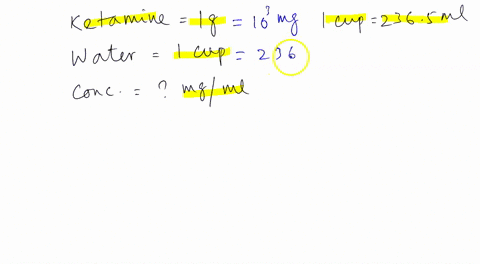 Ketamine = 1g = 10³ mg 1 cup = 236.5 ml
Water = 1 cup = 236
Conc. = ? mg/ml